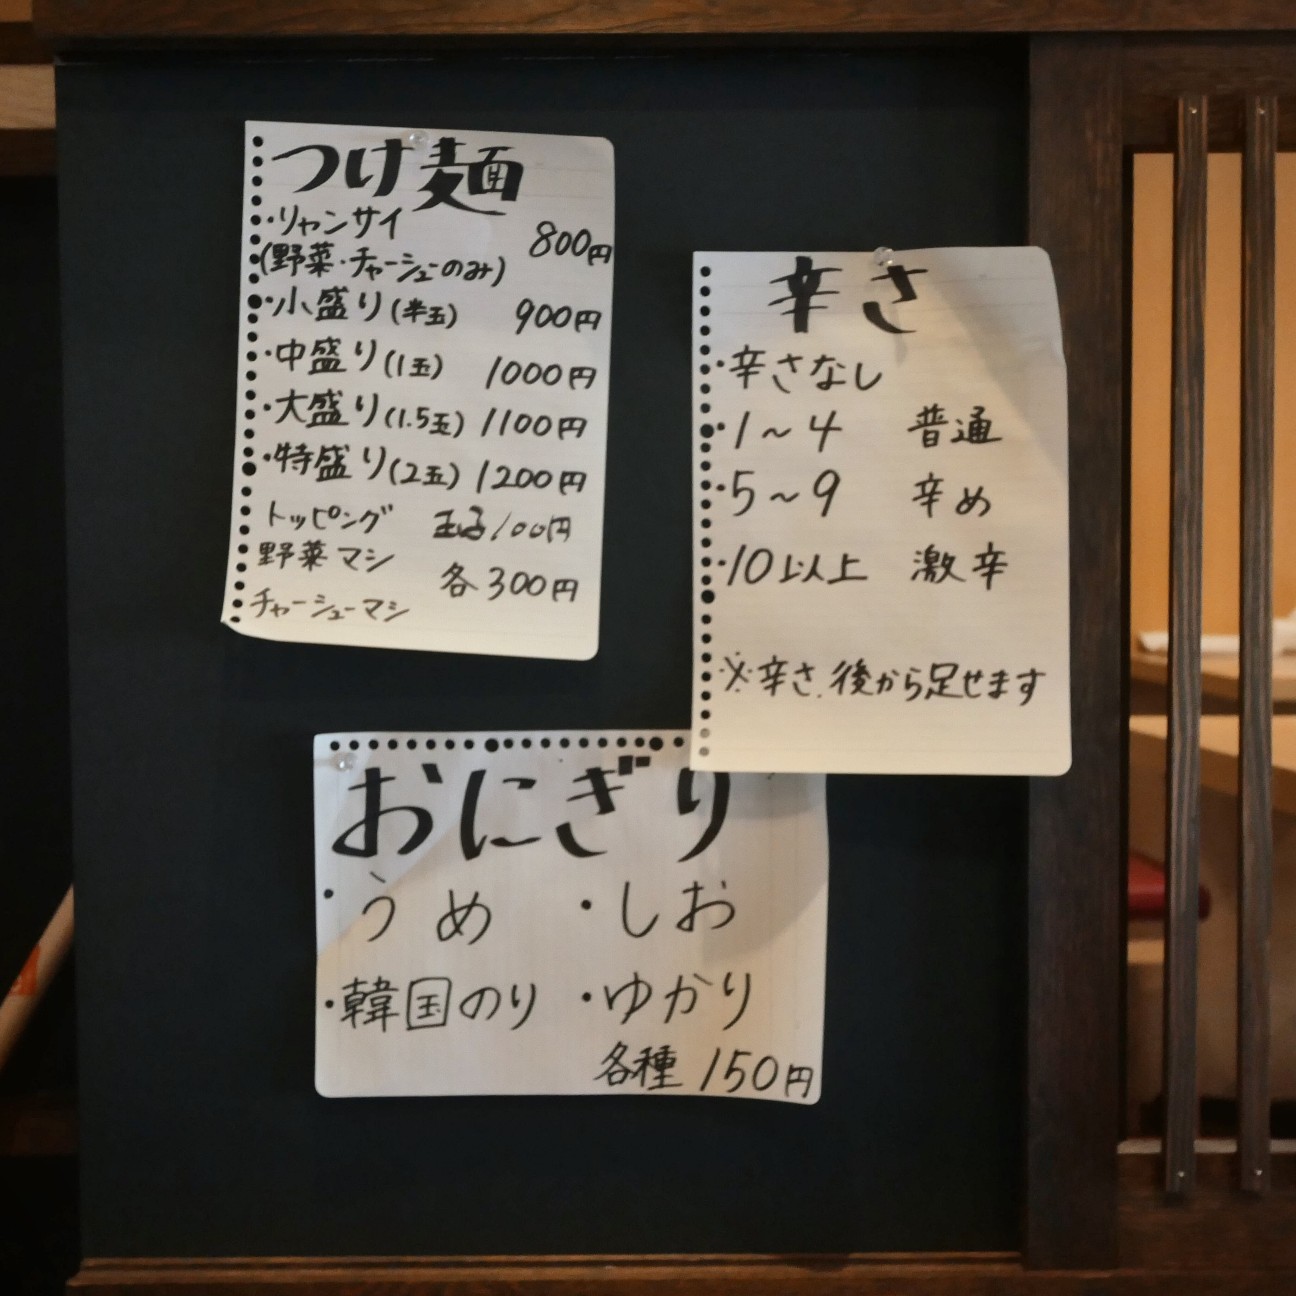 つけ麺
・リャンサイ
(野菜・チャーシューのみ) 800円
・小盛り(半玉) 900円
・中盛り(1玉) 1000円
・大盛り(1.5玉) 1100円
・特盛り(2玉) 1200円
トッピング 玉子100円
野菜マシ
チャーシューマシ 各300円
辛さ
・辛さなし
・1～4 普通
・5～9 辛め
・10以上 激辛
※辛さ、後から足せます
おにぎり
・うめ ・しお
・韓国のり ・ゆかり
各種 150円